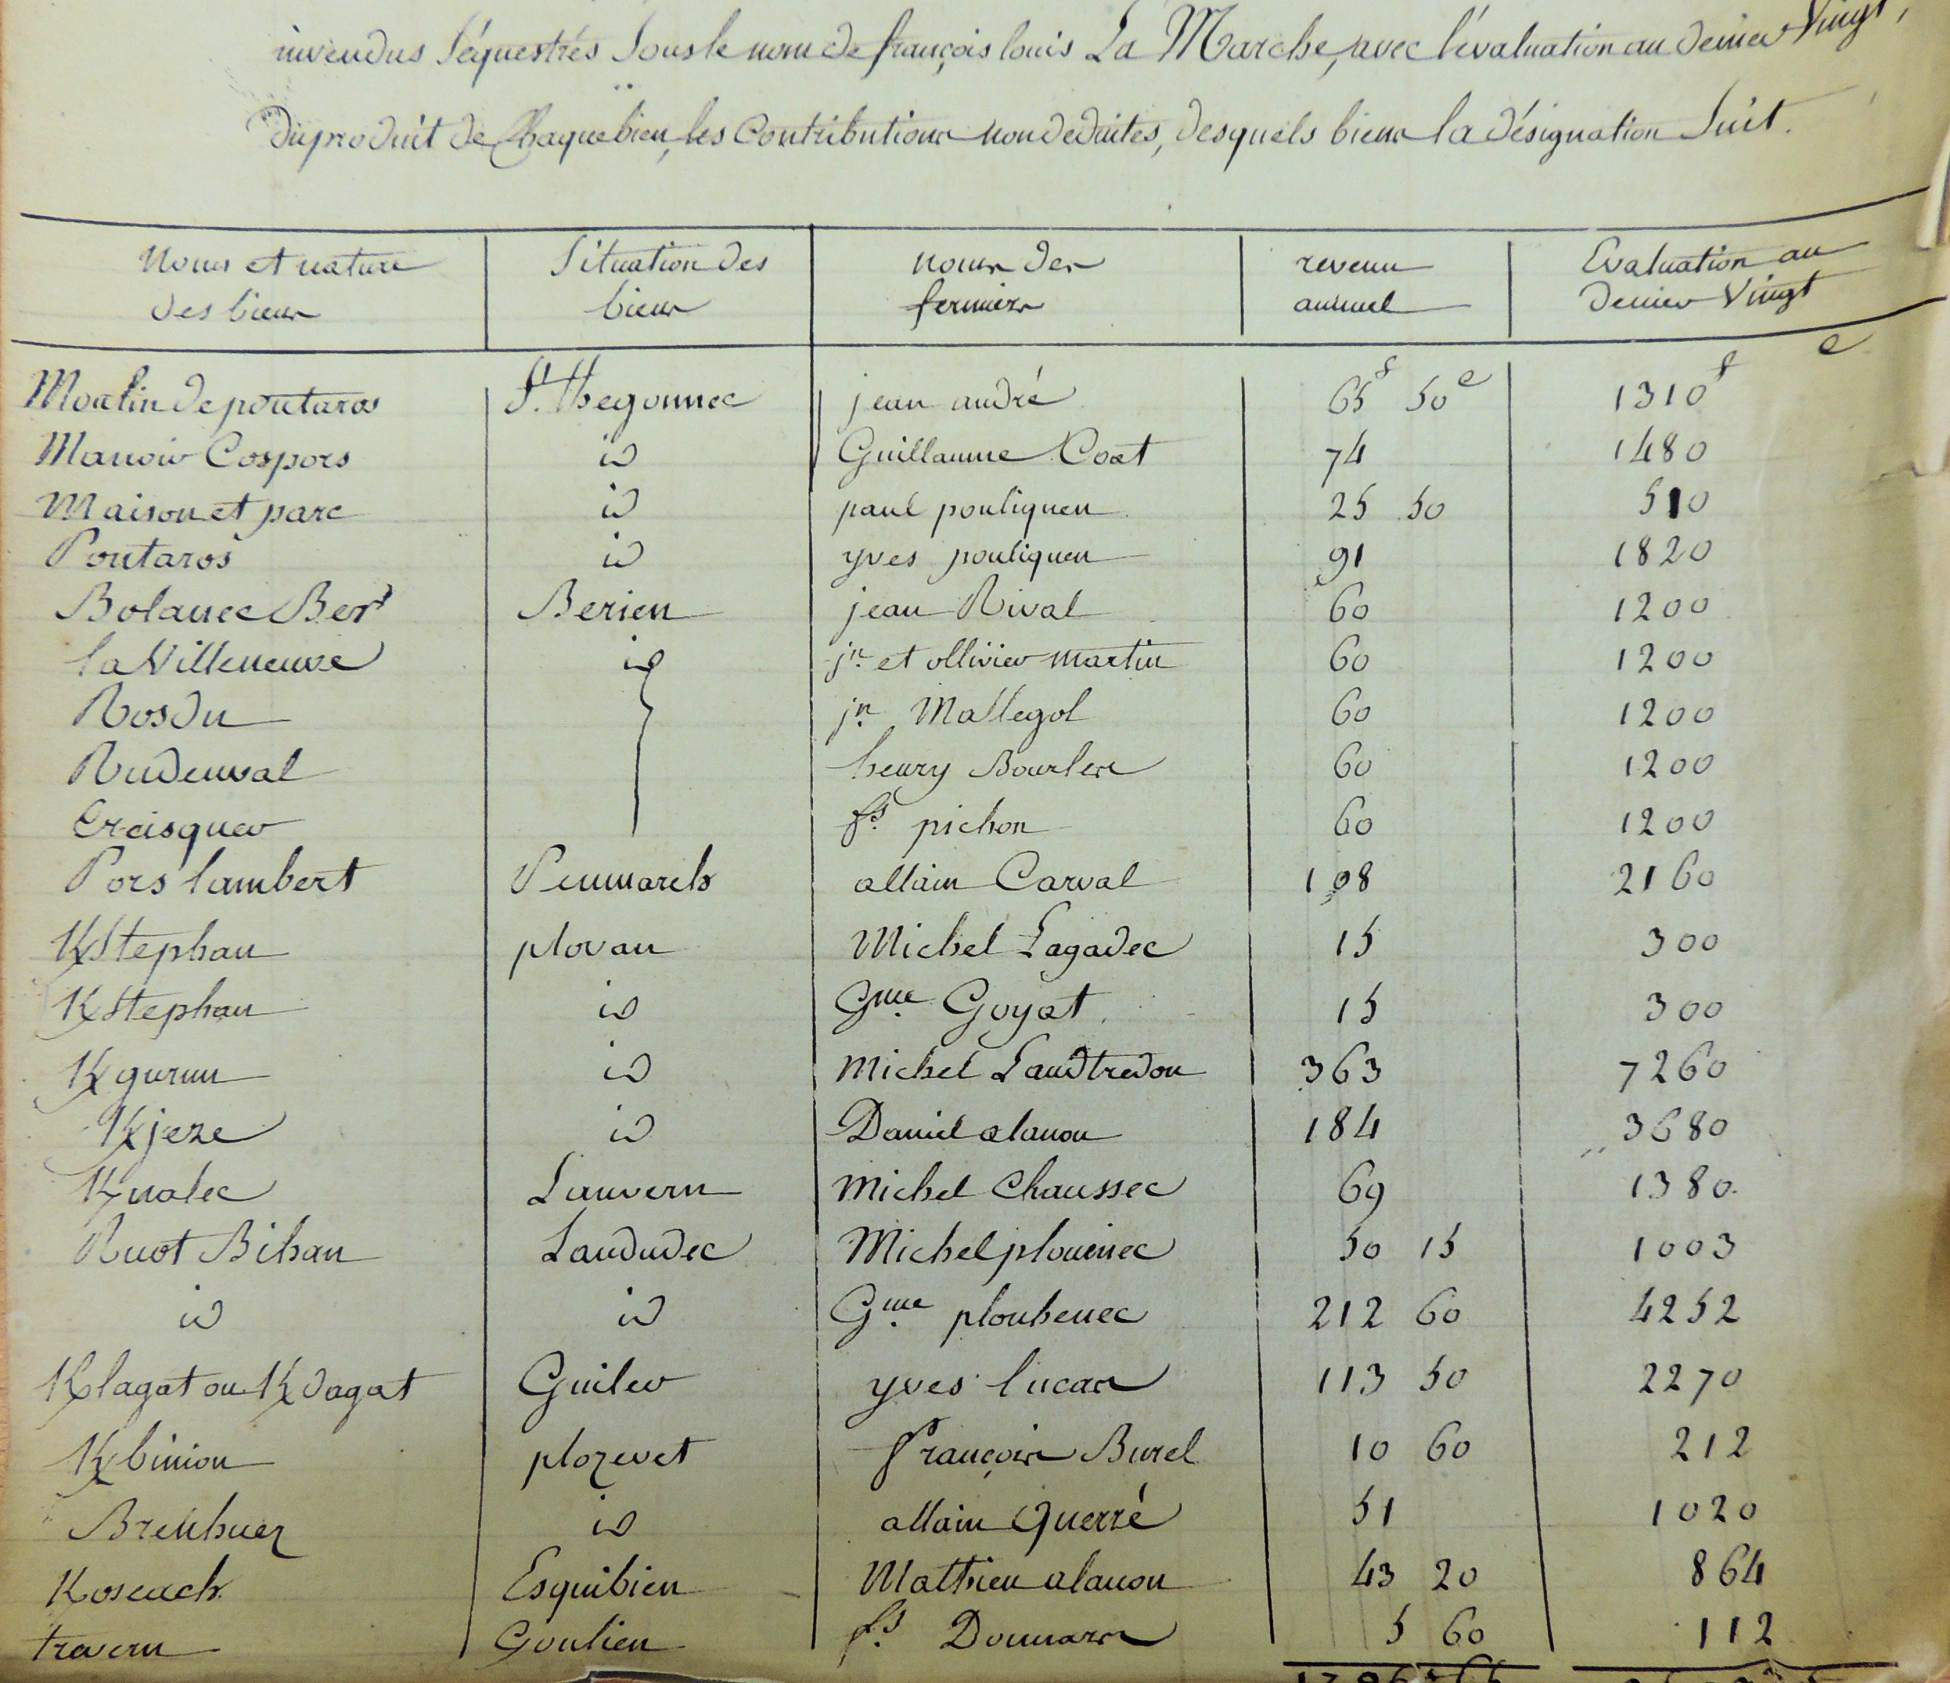 invendus séquestrés sous le nom de françois louis La Marche, avec l'évaluation au denier Vingt,
du produit de Chaque bien, les Contributions non deduites, desquels biens la désignation suit.
Noms et nature des biens | Situation des biens | noms des fermiers | revenu annuel | Evaluation au Denier Vingt
Moulin de pontaros | St. Thegonnec | jean andré | 65f 50c | 1310f c
Manoir Cospors | id | Guillaume Coat | 74 | 1480
Maison et parc | id | paul pouliquen | 25 50 | 510
Pontaros | id | yves pouliquen | 91 | 1820
Bolanec Bert | Berien | jean Rival | 60 | 1200
la Villeneuve | id | jn. et ollivier martin | 60 | 1200
Rosdu | jn. Mallegol | 60 | 1200
Rudenval | henry Bourles | 60 | 1200
Creisquer | fs. pichon | 60 | 1200
Pors lambert | Penmarch | allain Carval | 108 | 2160
KStephan | plovan | Michel Lagadec | 15 | 300
KStephan | id | Gme. Goyat | 15 | 300
Kgurun | id | Michel Landtredon | 363 | 7260
Kjeze | id | Daniel alanou | 184 | 3680
Knalec | Lanvern | Michel Chaussec | 69 | 1380
Ruot Bihan | Landudec | Michel plouinec | 50 15 | 1003
id | id | Gme. plouhenec | 212 60 | 4252
Klagat ou Kdagat | Guiler | yves lucas | 113 50 | 2270
Kbinion | plozevet | françois Burel | 10 60 | 212
Brenhuez | id | allain Querré | 51 | 1020
Koseach | Esquibien | Mathieu alanou | 43 20 | 864
trevern | Goulien | fs. Donnars | 5 60 | 112